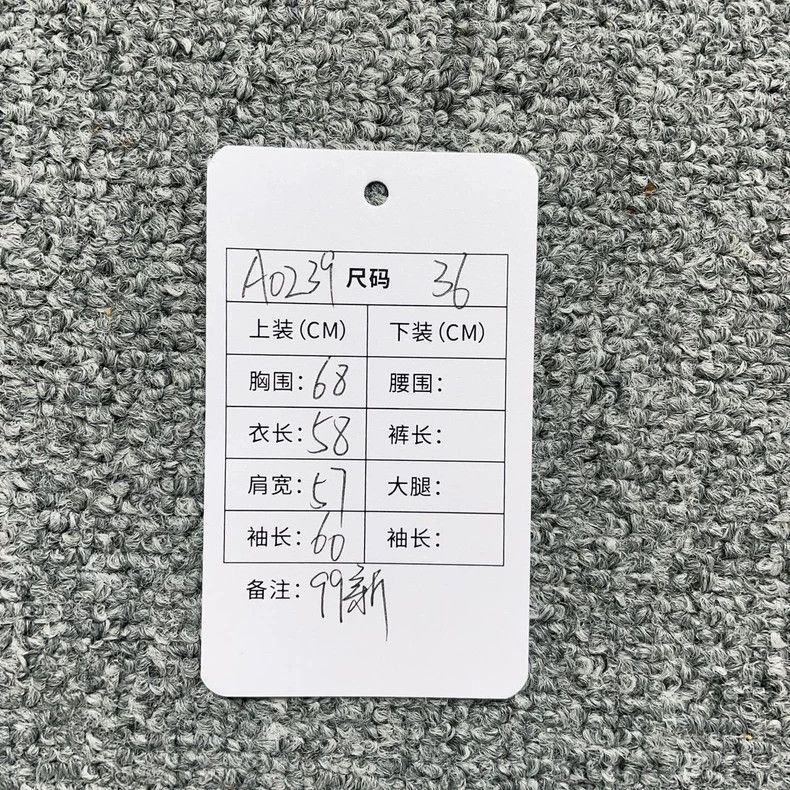 A0239 尺码 36
上装(CM) 下装(CM)
胸围: 68 腰围:
衣长: 58 裤长:
肩宽: 57 大腿:
袖长: 60 袖长:
备注: 99新